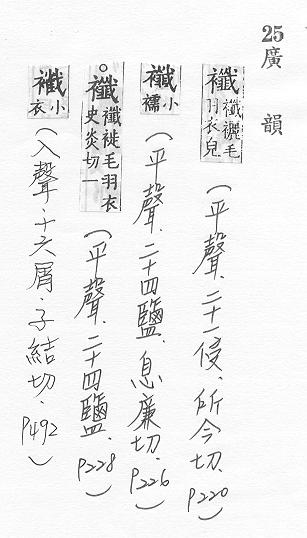 25廣韻
襳襳襹毛羽衣皃(平聲、二十一侵、所今切、P220)
襳小襦(平聲、二十四鹽、息廉切、P226)
○襳襳褷毛羽衣史炎切一(平聲、二十四鹽、P228)
襳小衣(入聲、十六屑、子結切、P492)